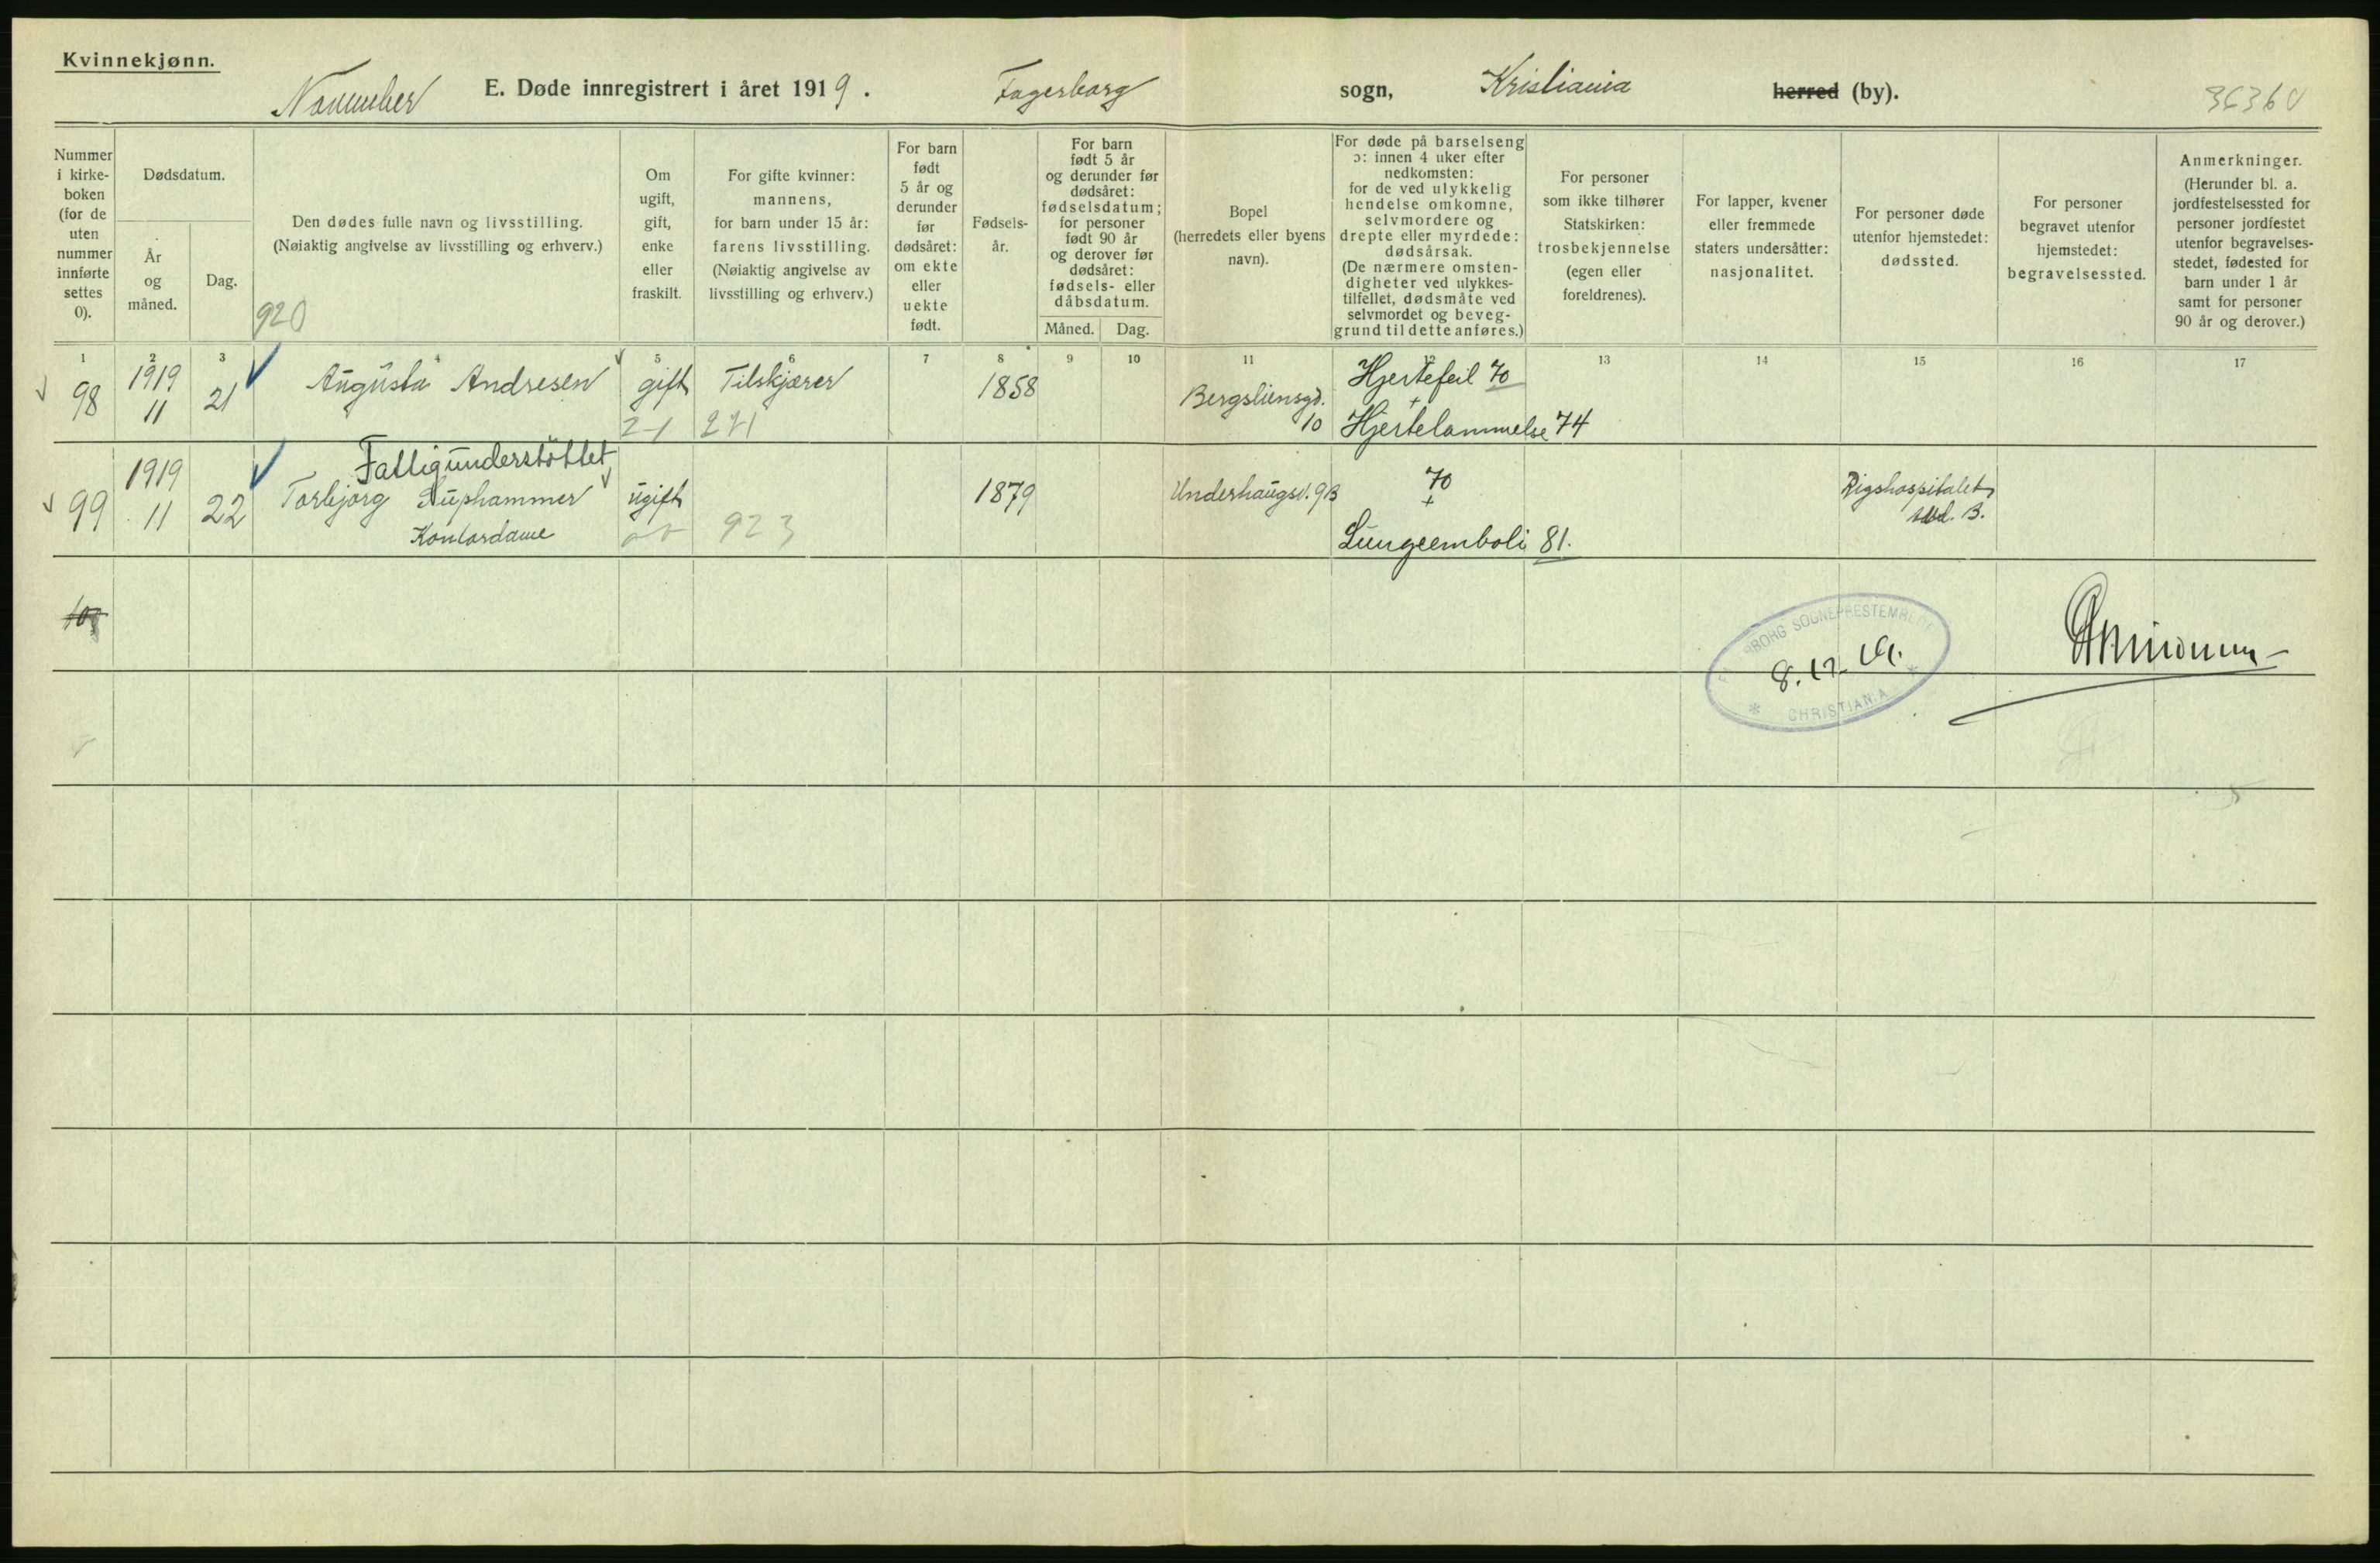 Kvinnekjønn.
November E. Døde innregistrert i året 1919. Fagerborg sogn, Kristiania herred (by).
Nummer i kirke-boken (for de uten nummer innførte settes 0).
Dødsdatum.
År og måned.
Dag.
Den dødes fulle navn og livsstilling.
(Nøiaktig angivelse av livsstilling og erhverv.)
920
Om ugift, gift, enke eller fraskilt.
For gifte kvinner: mannens, for barn under 15 år: farens livsstilling. (Nøiaktig angivelse av livsstilling og erhverv.)
For barn født 5 år og derunder før dødsåret: om ekte eller uekte født.
Fødsels-år.
For barn født 5 år og derunder før dødsåret: fødselsdatum; for personer født 90 år og derover før dødsåret: fødsels- eller dåbsdatum.
Måned. Dag.
Bopel (herredets eller byens navn).
For døde på barselseng ɔ: innen 4 uker efter nedkomsten: for de ved ulykkelig hendelse omkomne, selvmordere og drepte eller myrdede: dødsårsak. (De nærmere omsten-digheter ved ulykkes-tilfellet, dødsmåte ved selvmordet og beveg-grund til dette anføres.)
For personer som ikke tilhører Statskirken: trosbekjennelse (egen eller foreldrenes).
For lapper, kvener eller fremmede staters undersåtter: nasjonalitet.
For personer døde utenfor hjemstedet: dødssted.
For personer begravet utenfor hjemstedet: begravelsessted.
Anmerkninger. (Herunder bl. a. jordfestelsessted for personer jordfestet utenfor begravelses-stedet, fødested for barn under 1 år samt for personer 90 år og derover.)
1 2 3 4 5 6 7 8 9 10 11 12 13 14 15 16 17
98 1919 11 21 Augusta Andresen gift Tilskjærer 1858 Bergsliensgd. 10 Hjertefeil 70
+
Hjertelammelse 74
2-1 271
Fattigunderstöttet
99 1919 11 22 Torbjørg ugift 1879 Underhaugsv. 9B 70
+
Kontordame 923 Lungeemboli 81.
Rigshospitalet
B.
100
SOGNEPRESTEMBEDE
8.12.19.
CHRISTIANIA